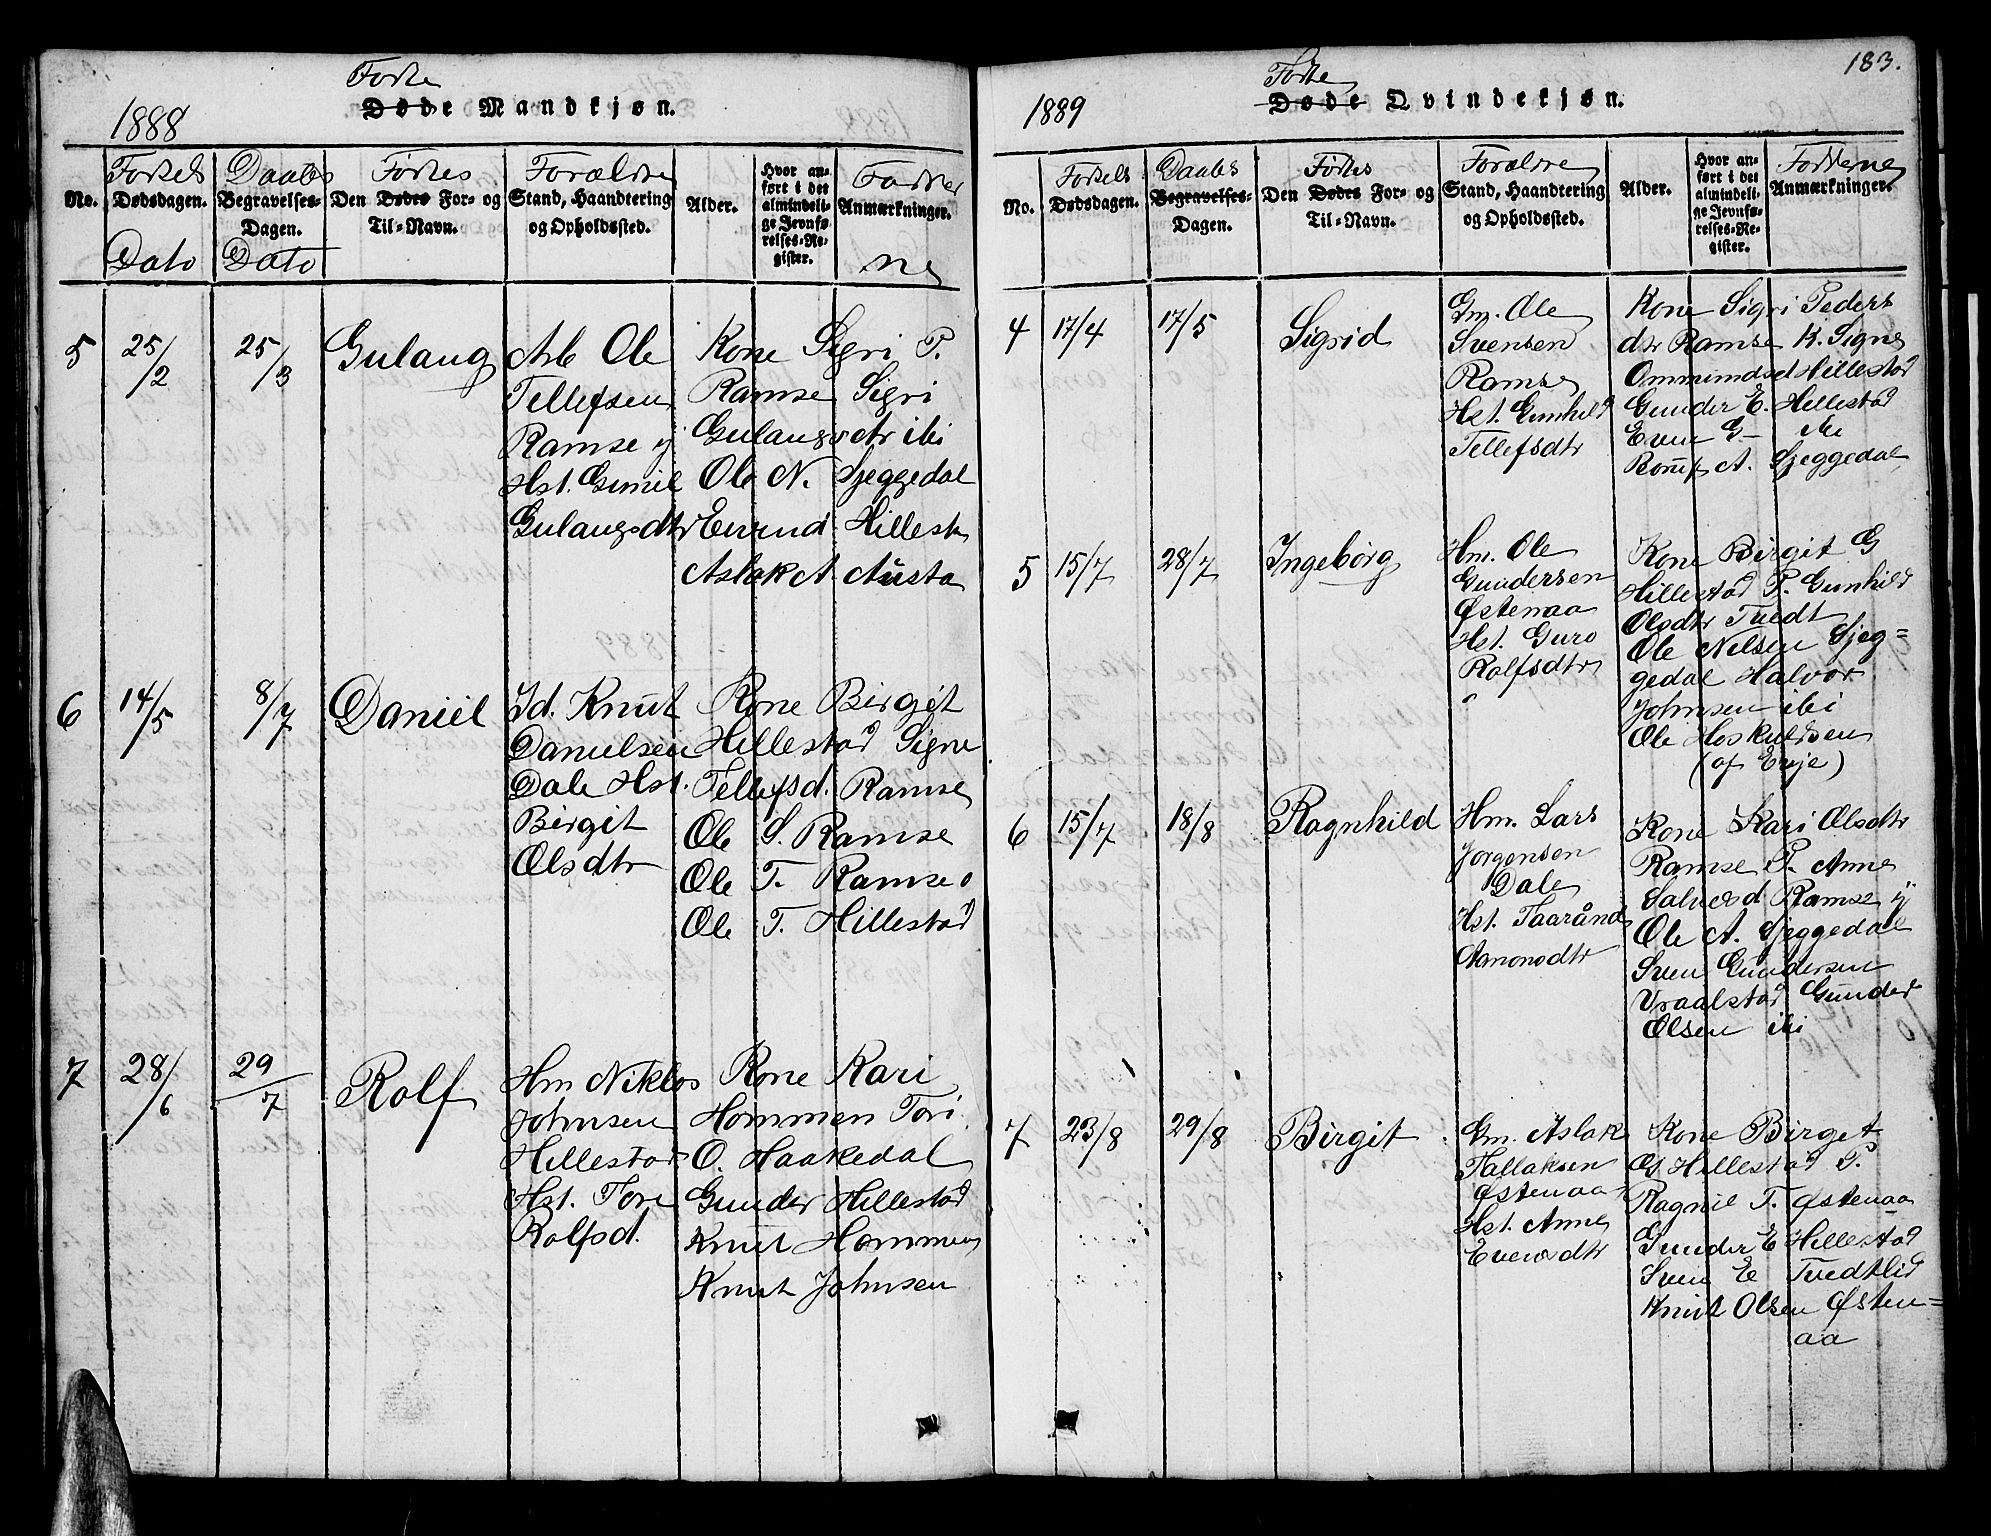 Fødte
Døde Mandkjøn.
1888
Fødsels Daabs Fødtes Forældre Faddere
No. Dødsdagen. Begravelses-Dagen. Den Dødes For- og Til-Navn. Stand, Haandtering og Opholdssted. Alder. Hvor anført i det almindelige Jevnførelses-Register. Anmærkninger.
Dato Dato ne
5 25/2 25/3 Gulaug
Arb Ole
Tellefsen
Ramse y
Hst. Gunil
Gulaugsdtr
Kone Sigri P.
Ramse Sigri
Gulaugsdtr ibi
Ole N. Sjeggedal
Eivind Hillest
Aslak A. Austa
6 14/5 8/7 Daniel
Id. Knut
Danielsen
Dale Hst.
Birgit
Olsdtr
Kone Birgit
Hillestad Signe
Tellefsd. Ramse
Ole S. Ramse
Ole T. Ramse
Ole T. Hillestad
7 28/6 29/7 Rolf
Hm Niklos
Johnsen
Hillestad
Hst. Tore
Rolfsd.
Kone Kari
Hommen Tori
O. Haakedal
Gunder Hillestad
Knut Hommen
Knut Johnsen
183.
Fødte
Døde Qvindekjøn.
1889
Fødsels Daabs Fødtes Forældre Fadderne
No. Dødsdagen. Begravelses-Dagen. Den Dødes For- og Til-Navn. Stand, Haandtering og Opholdssted. Alder. Hvor anført i det almindelige Jevnførelses-Register. Anmærkninger.
4 17/4 17/5 Sigrid
Gm. Ole
Svensen
Ramse
Hst. Gunhild
Tellefsdtr
Kone Sigri Peders
dtr Ramse K. Signe
Ommundsd Hillestad
Gunder E. Hillestad
Even G— ibi
A. Sjeggedal
5 15/7 28/7 Ingeborg
Hm. Ole
Gundersen
Østenaa
Hst. Guro
Rolfsdtr
Kone Birgit G
Hillestad P. Gunhild
Olsdtr Tvedt
Ole Nilsen Sjeg=
gedal Halvor
Johnsen ibi
Ole Hoskuldsen
(af Evje)
6 15/7 18/8 Ragnhild
Hm. Lars
Jørgensen
Dale
Hst. Taaränd
Aanonsdtr
Kone Kari Olsdtr
Ramse P. Anne
Salvesd Ramse y
Ole A. Sjeggedal
Sven Gundersen
Vraalstad Gunder
Olsen ibi
7 23/8 29/8 Birgit
Gm. Aslak
Tallaksen
Østenaa
Hst. Anne
Evensdtr
Kone Birget
O. Hillestad P.
Ragnil T. Østenaa
Gunder E Hillestad
Sven E Tvedtlid
Knut Olsen Østen=
aa